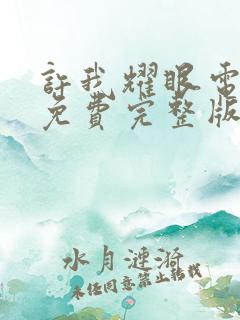 許我耀眼電
免費完整版
水月漣漪
未经同意禁止转载